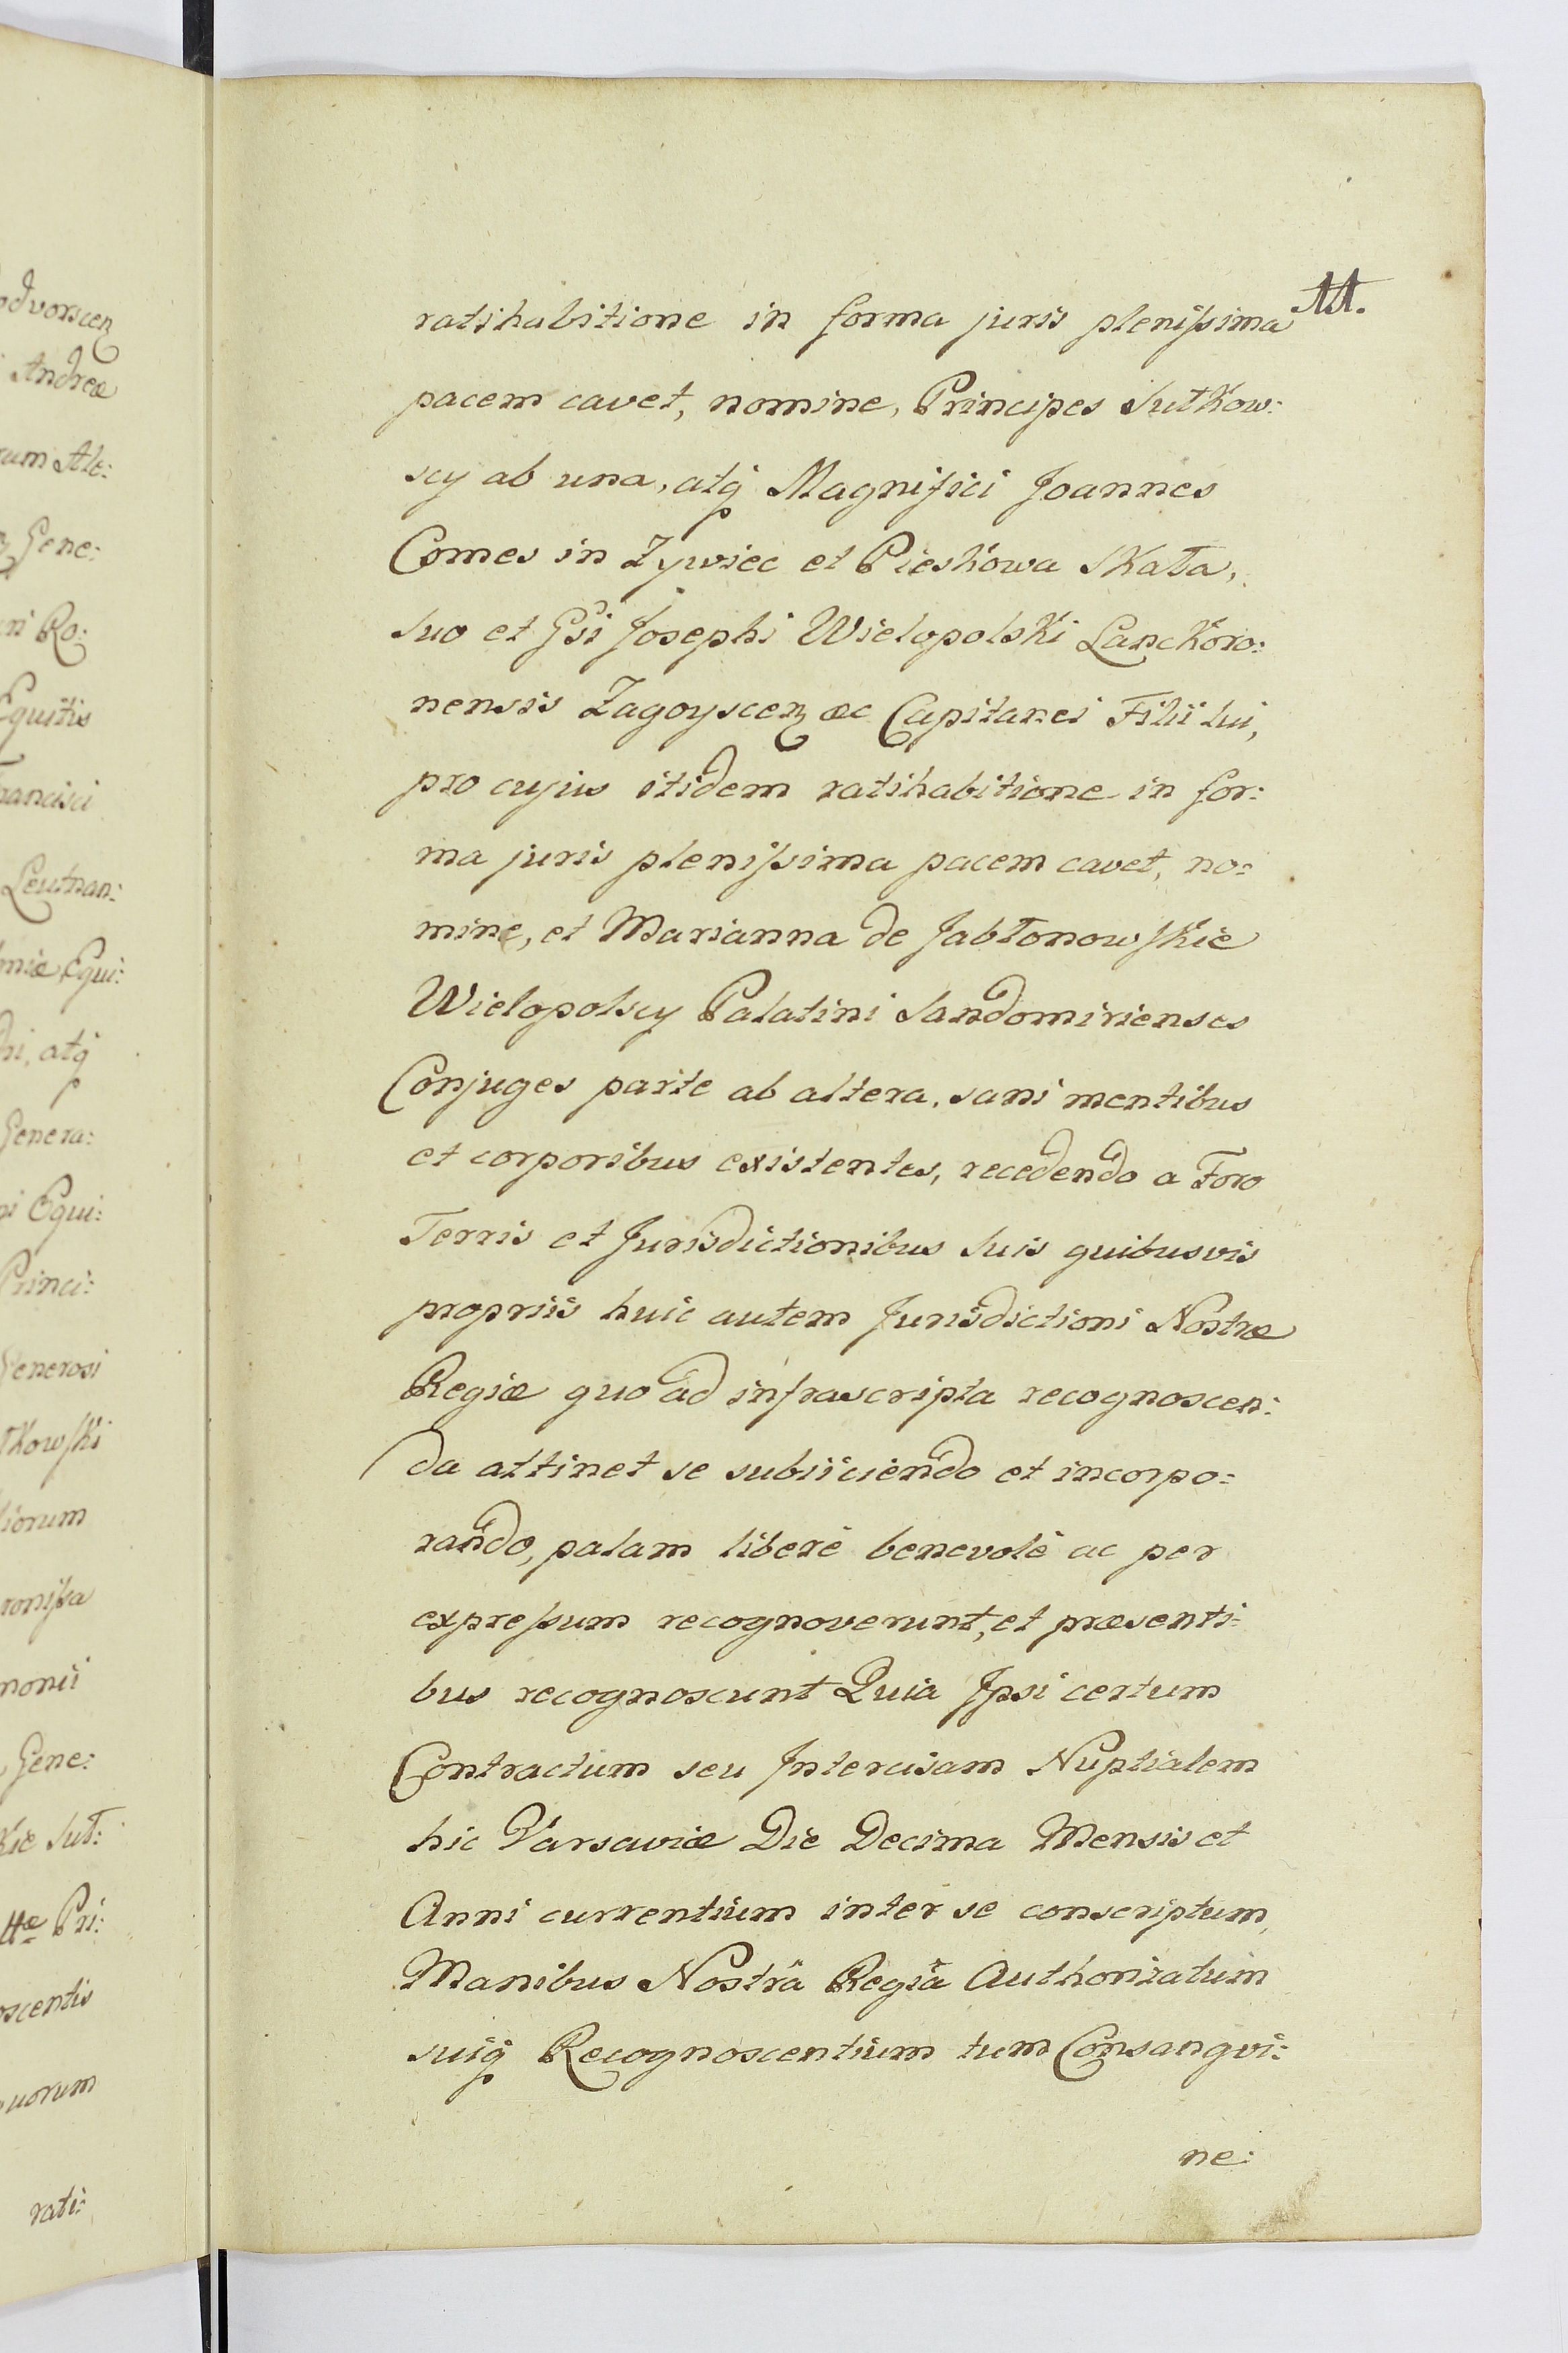 ratihabitione in forma juris plenissima
pacem cavet, nomine, Principes Sułkow:
scy ab una, atq Magnifici Joannes
Comes in Zywiec et Pieskowa Skała,
suo et Gsi Josephi Wielopolski Lanckoro:
nensis Zagoyscen ac Capitanei Filii sui,
pro cujus itidem ratihabitione in for:
ma juris plenissima pacem cavet, no:
mine, et Marianna de Jabłonowskie
Wielopolscy Palatini Sandomirienses
Conjuges parte ab altera, sani mentibus
et corporibus existentes, recedendo a Foro
Terris et Jurisdictionibus suis quibusvis
propriis huic autem Jurisdictioni Nostræ
Regiæ quo ad infrascripta recognoscen:
da attinet se subiiciendo et incorpo:
rando, palam liberè benevolè ac per
expressum recognoverunt, et præsenti:
bus recognoscunt Quia Ipsi certum
Contractum seu Intercisam Nuptialem
hic Varsaviæ Die Decima Mensis et
Anni currentium inter se conscriptum,
Manibus Nostrâ Regiâ Authorizatum
suiq Recognoscentium tum Consangvi:
ne:
odvorscen
Andreæ
rum Ale:
Gene:
ni Ro:
Equitis
rancisci
Leutnan:
niæ, Equi:
atq
Genera:
Equi:
Princi:
Generosi
łkowski
liorum
ronissa
monii
Gene:
kie Suł:
Pri:
oscentis
quorum
rati: